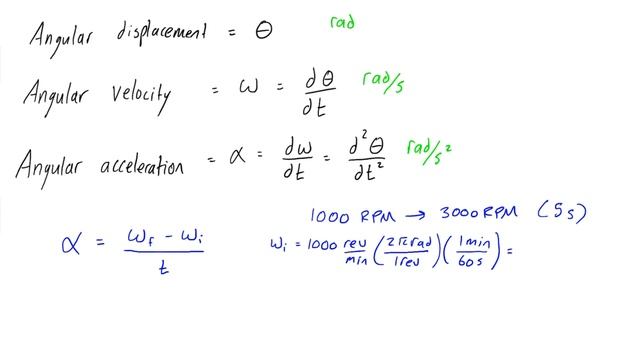 Angular displacement = θ rad
Angular velocity = ω = dθ/dt rad/s
Angular acceleration = α = dω/dt = d²θ/dt² rad/s²
1000 RPM → 3000 RPM (5s)
α = (ωf - ωi)/t
ωi = 1000 rev/min (2π rad/1rev)(1min/60s) =